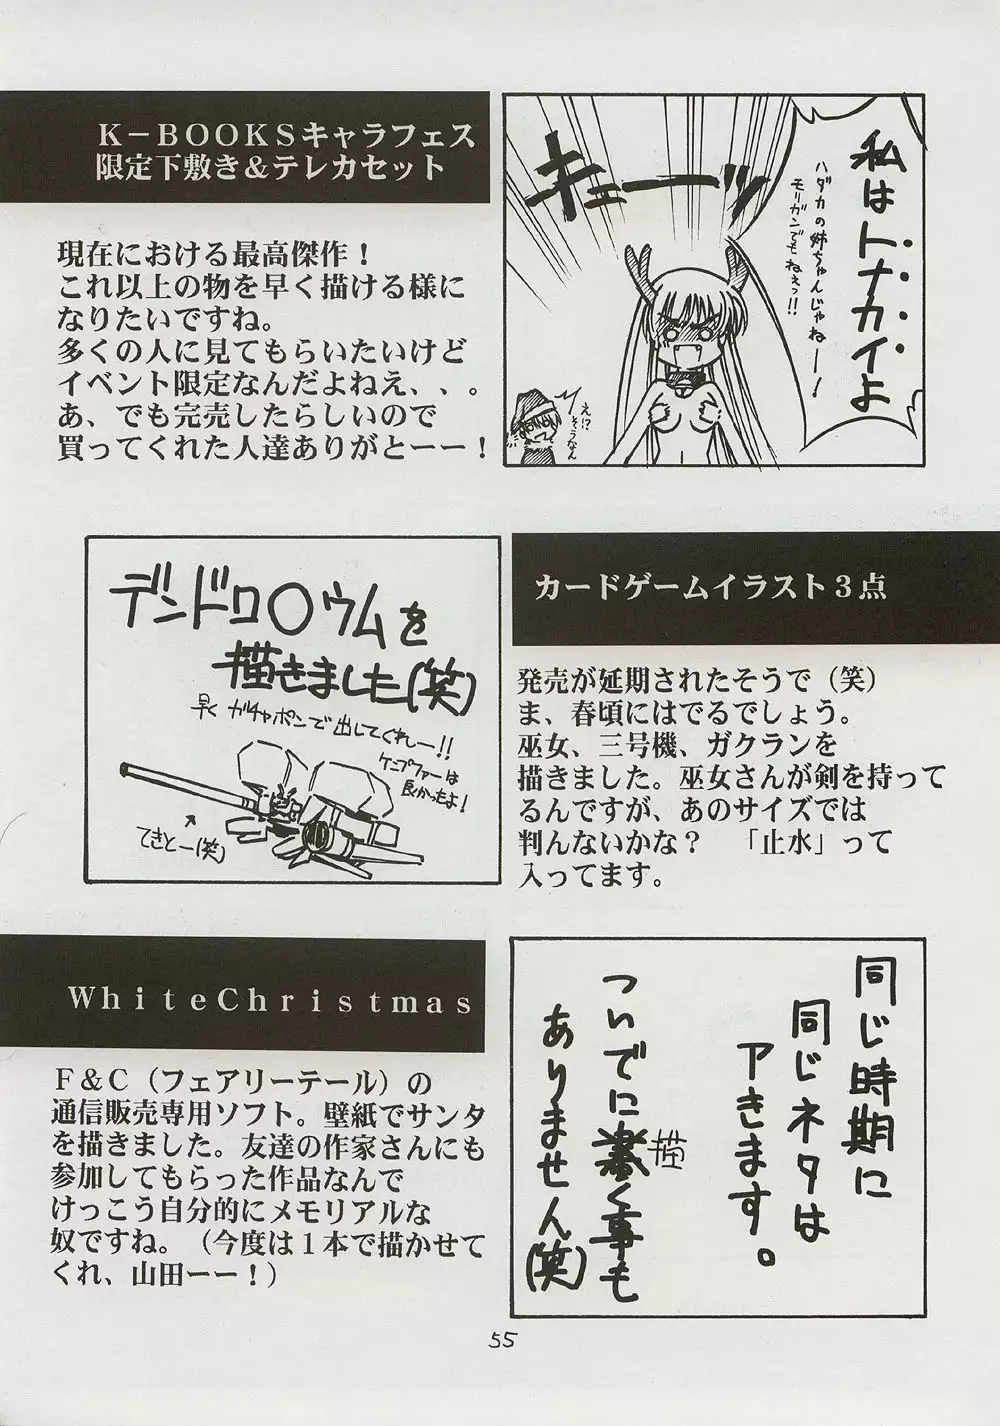 K－BOOKSキャラフェス
限定下敷き＆テレカセット
現在における最高傑作！
これ以上の物を早く描ける様に
なりたいですね。
多くの人に見てもらいたいけど
イベント限定なんだよねえ、、。
あ、でも完売したらしいので
買ってくれた人達ありがとーー！
私はトナカイよ
ハダカの姉ちゃんじゃねー！
モリガンでもねぇっ!!
キューッ
え!?
そうなん
デンドロ〇ウムを
描きました(笑)
早くガチャポンで出してくれー!!
ケンプファーは
良かったよ！
てきとー(笑)
カードゲームイラスト３点
発売が延期されたそうで（笑）
ま、春頃にはでるでしょう。
巫女、三号機、ガクランを
描きました。巫女さんが剣を持って
るんですが、あのサイズでは
判んないかな？　「止水」って
入ってます。
WhiteChristmas
F＆C（フェアリーテール）の
通信販売専用ソフト。壁紙でサンタ
を描きました。友達の作家さんにも
参加してもらった作品なんで
けっこう自分的にメモリアルな
奴ですね。（今度は１本で描かせて
くれ、山田ーー！）
同じ時期に
同じネタは
アきます。
ついでに描く事も
ありません(笑)
55